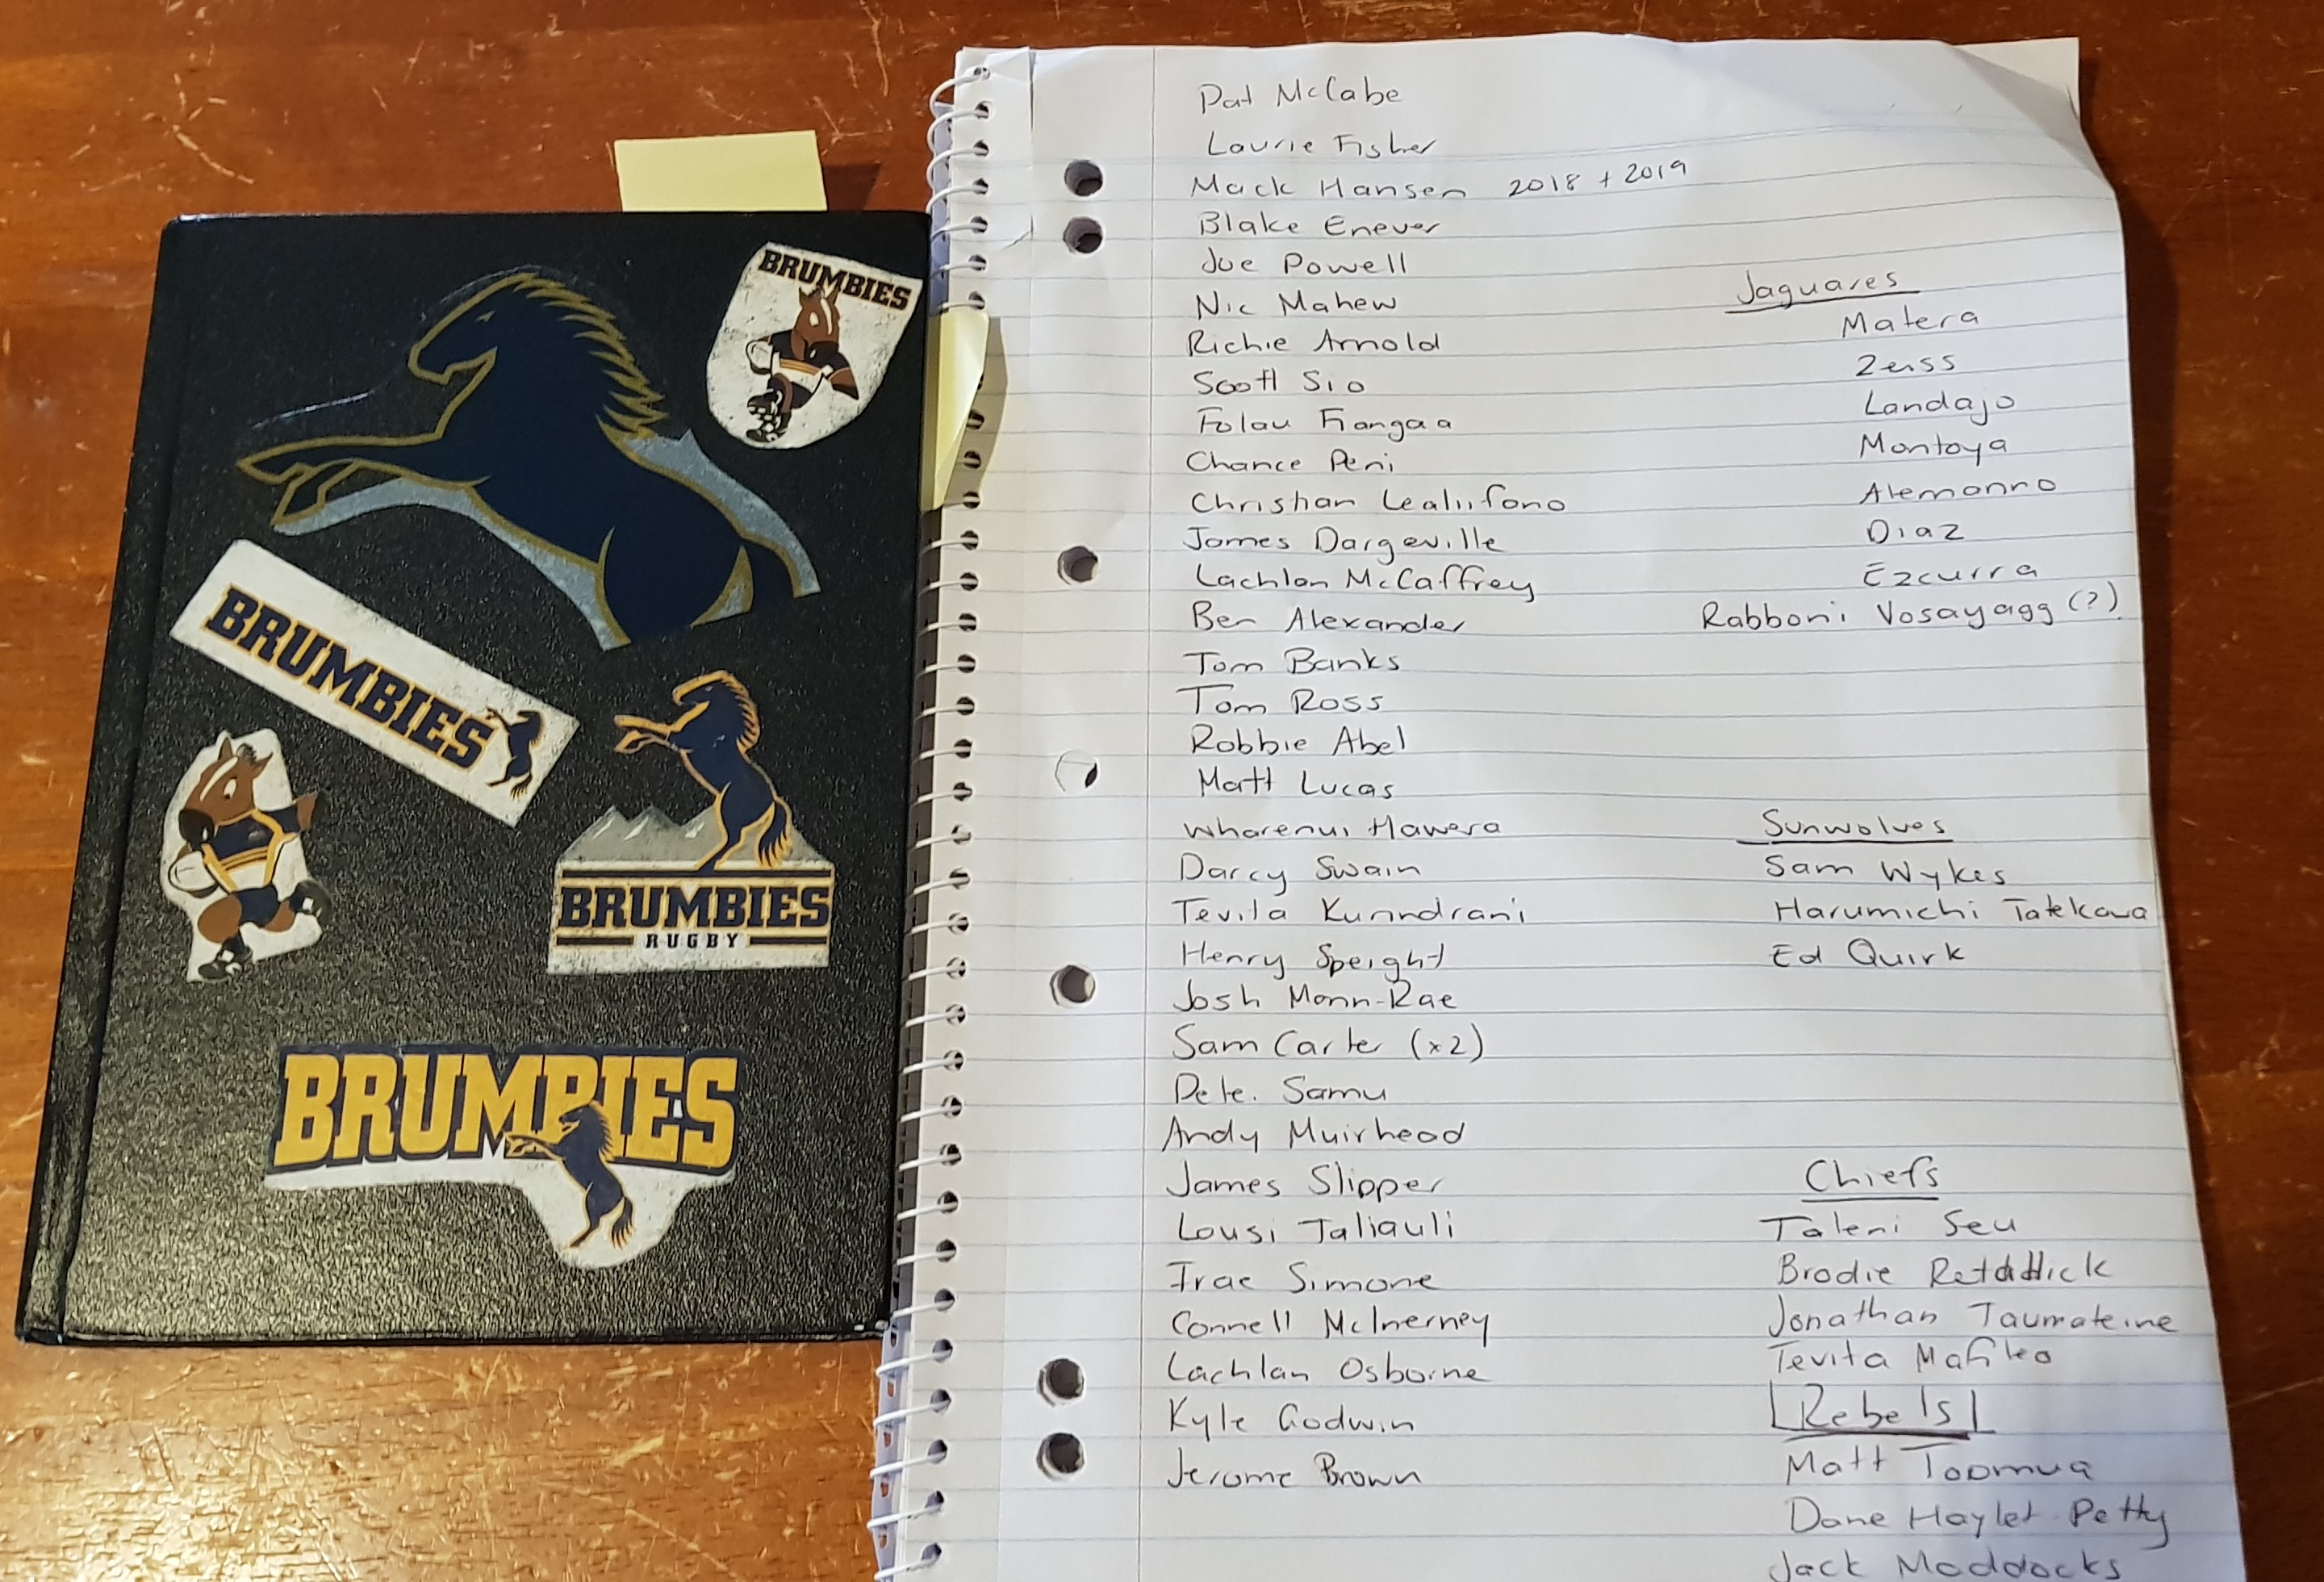 BRUMBIES
BRUMBIES
BRUMBIES
RUGBY
BRUMBIES
Pat McCabe
Laurie Fisher
Mack Hansen 2018 + 2019
Blake Enever
Joe Powell
Nic Mahew
Richie Arnold
Scott Sio
Folau Fiangaa
Chance Peni
Christian Lealiifano
James Dargaville
Lachlan McCaffrey
Ben Alexander
Tom Banks
Tom Ross
Robbie Abel
Matt Lucas
Wharenui Hawera
Darcy Swain
Tevita Kurindrani
Henry Speight
Josh Mann-Rae
Sam Carter (x2)
Pete. Samu
Andy Muirhead
James Slipper
Lousi Taliauli
Irae Simone
Connell McInerney
Lachlan Osborne
Kyle Godwin
Jerome Brown
Jaguares
Matera
Zeiss
Landajo
Montoya
Alemanno
Diaz
Ezcurra
Rabboni Vosayagg (?)
Sunwolves
Sam Wykes
Harumichi Tatekawa
Ed Quirk
Chiefs
Taleni Seu
Brodie Retallick
Jonathan Taumateine
Tevita Mafileo
Rebels
Matt Toomua
Dane Haylet Petty
Jack Maddocks